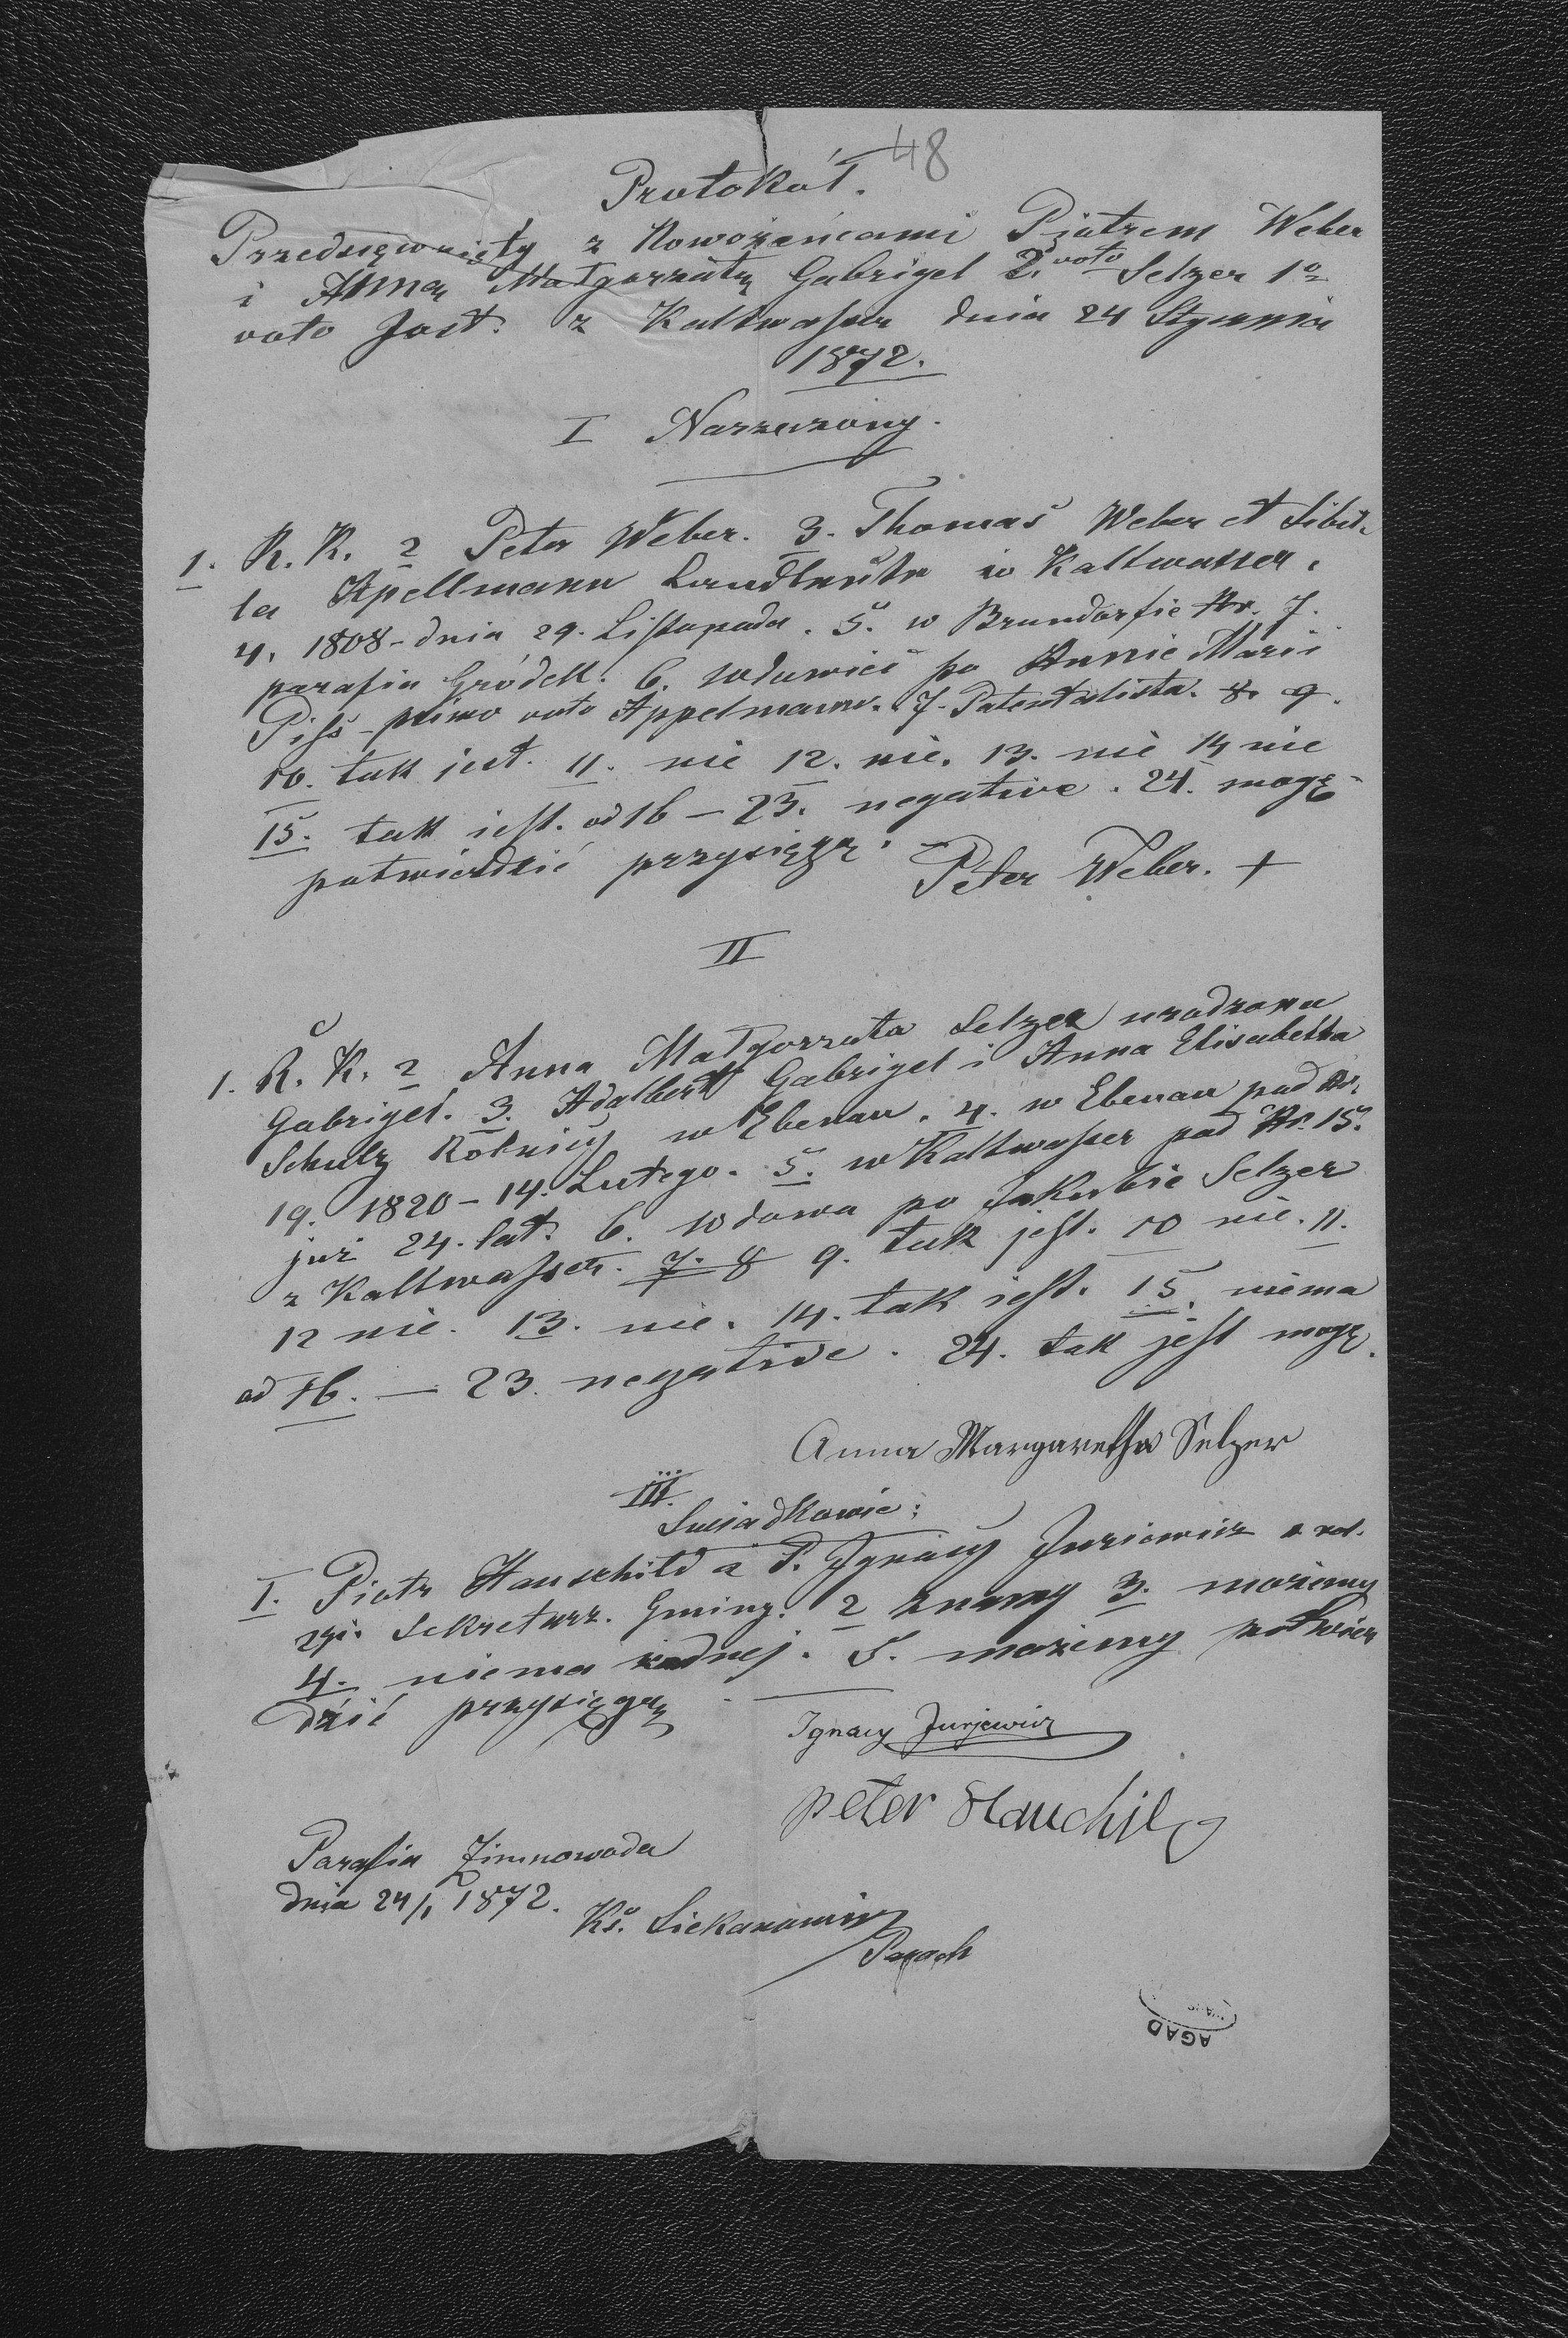 48
Protokół.
Przedsięwzięty z Nowożeńcami Piotrem Weber
i Anną Małgorzatą Gabrigel 2. voto Selzer 1º
voto Jost. z Kaltwasser dnia 24 Stycznia
1872.
I Narzeczony.
1. R. K. 2 Peter Weber. 3. Thomas Weber et Sibil-
la Apellmann Landleute in Kaltwasser.
4. 1808 - dnia 29. Listopada. 5. w Brundorfie Nr. 7.
parafia Gródek. 6. wdowiec po Annie Marii
Piss - primo voto Appelmann. 7. Patentalista. 8. 9.
10. tak jest. 11. nie 12. nie. 13. nie 14 nie
15. tak jest. od 16 - 23. negative. 24. mogę
potwierdzić przysięgą.
Peter Weber. +
II
1. R. K. 2 Anna Małgorzata Selzer urodzona
Gabrigel. 3. Adalbert Gabrigel i Anna Elisabetha
Schulz Rolnicy w Ebenau. 4. w Ebenau pod Nr.
19. 1820 - 14. Lutego. 5. w Kaltwasser pod Nr. 15.
już 24. lat. 6. wdowa po Jakobie Selzer
z Kaltwasser. 7. 8 9. tak jest. 10 nie. 11.
12 nie. 13. nie. 14. tak jest. 15. niema
od 16. - 23. negative. 24. tak jest mogę.
Anna Margaretha Selzer
III.
Swiadkowie:
1. Piotr Hauschild a P. Ignacy Juriewicz
Sekretarz. Gminy. 2 znamy 3. możemy
4. niema żadnej. 5. możemy potwier
dzić przysięgą
Ignacy Jurjewicz
peter Hauchild
Parafia Zimnowoda
dnia 24/1 1872.
Ks. Siekanowicz
Paroch
AGAD